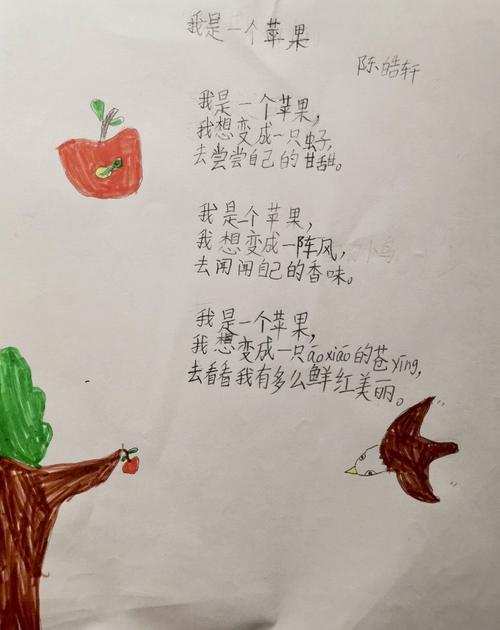 我是一个苹果
陈皓轩
我是一个苹果，
我想变成一只虫子，
去尝尝自己的甘甜。
我是个苹果，
我想变成一阵风，
去闻闻自己的香味。
我是一个苹果，
我想变成一只āo xiáo的苍yīng，
去看看我有多么鲜红美丽。